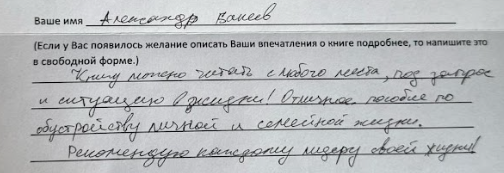 Ваше имя Александр Ванеев
(Если у Вас появилось желание описать Ваши впечатления о книге подробнее, то напишите это
в свободной форме.)
Книгу можно читать с любого места, под запрос
и ситуацию в жизни! Отличное пособие по
обустройству личной и семейной жизни.
Рекомендую каждому лидеру своей жизни!